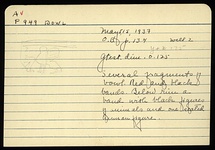 A V
P 949 BOWL
May 15, 1937
O.D. p. 134 well 2
Gtest. dim. 0.125
Several fragments of
bowl. Red and black
bands. Below rim a
band with black figures
of animals and one
human figure.